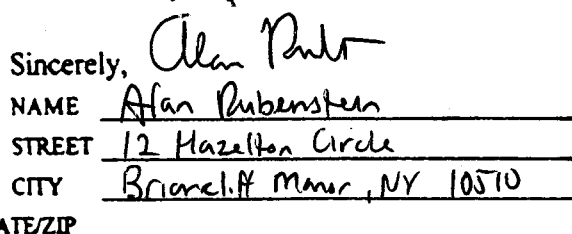 Sincerely, Alan Rub
NAME Alan Rubenstein
STREET 12 Hazelton Circle
CITY Briarcliff Manor, NY 10510
ATE/ZIP